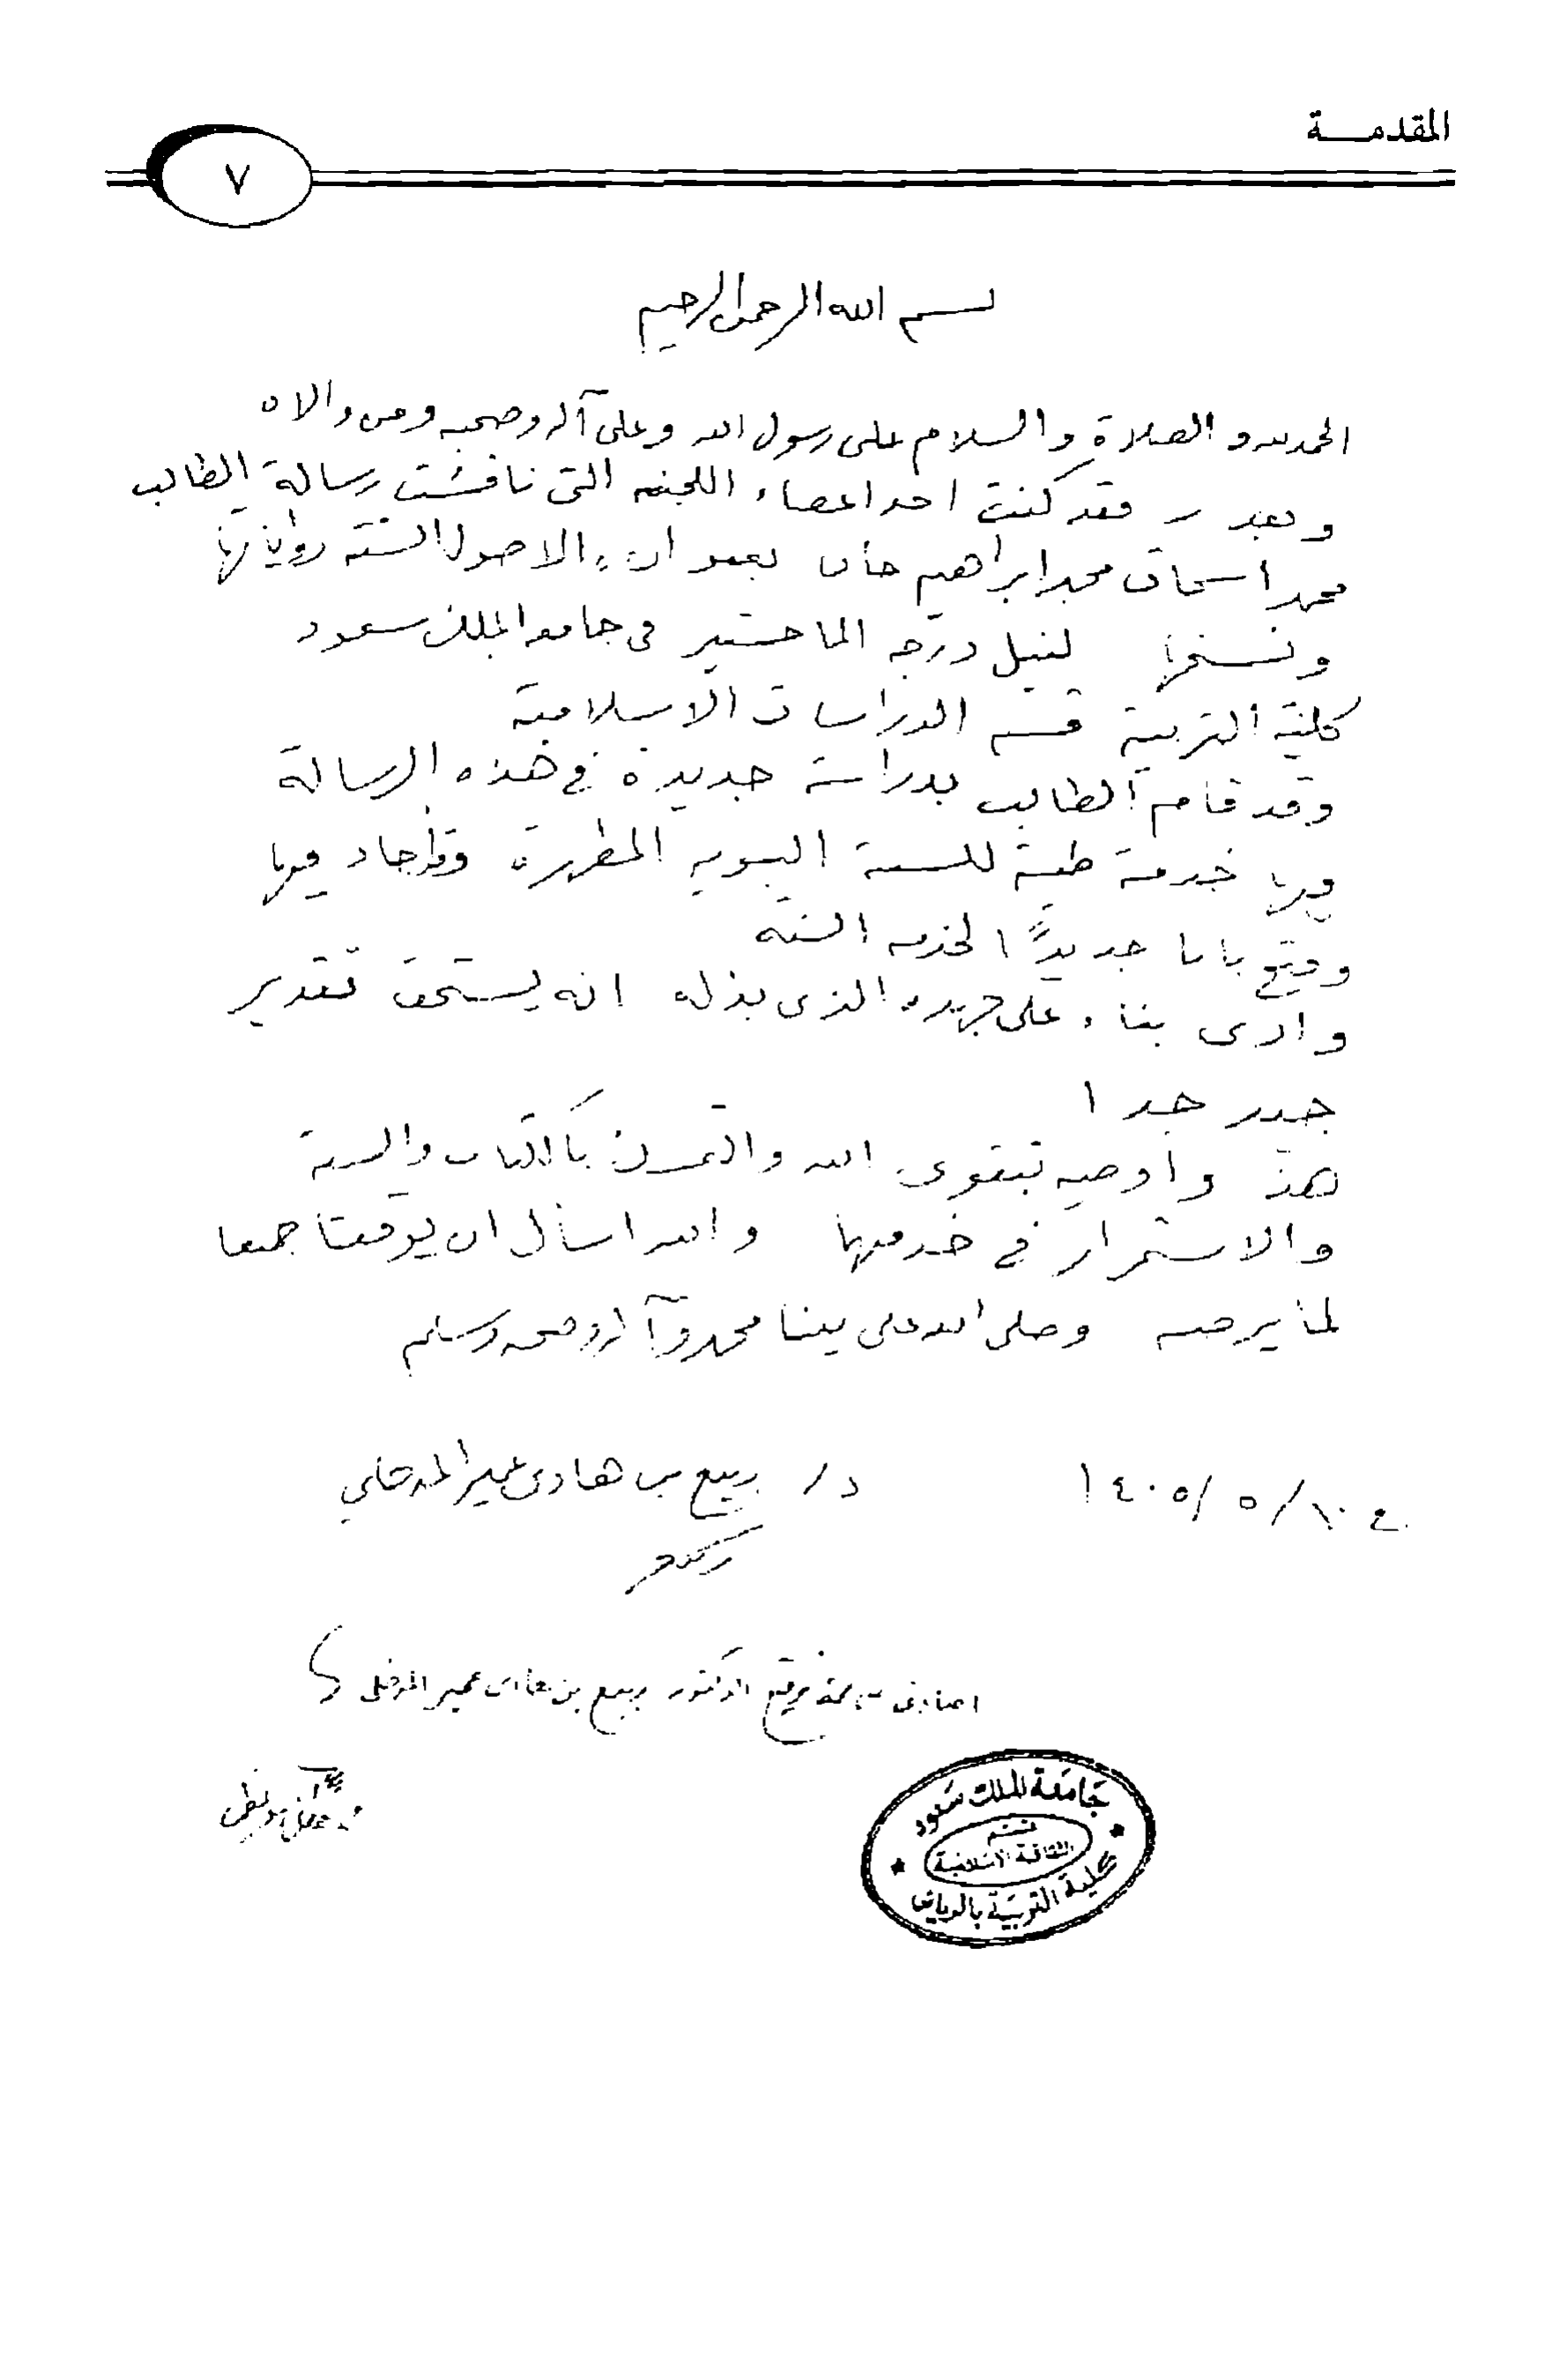 المقدمـــة
٧
بسم الله الرحمن الرحيم
الحمد لله والصلاة والسلام على رسول الله وعلى آله وصحبه ومن والاه
وبعد فقد كنت احد اعضاء اللجنه التى ناقشت رسالة الطالب
محمد اسحاق محمد ابراهيم خان بعنوان الاصول الستة رواياتها
ونسخها لنيل درجه الماجستير فى جامعه الملك سعود
كلية التربية قسم الدراسات الاسلامية
وقد قام الطالب بدراسة جديدة في هذه الرسالة
فيها خدمة طيبة للسنة النبويه المطهرة وقد اجاد فيها
وفتح بابا جديداً لخدمه السنه
وارى بناء على جهده الذى بذله انه يستحق تقدير
جيد جدا
هذا واوصيه بتقوى الله والتمسك بالكتاب والسنة
والاستمرار في خدمتهما والله اسأل ان يوفقنا جميعا
لما يرضيه وصلى الله على نبينا محمد وآله وصحبه وسلم
د / ربيع بن هادى عمير المدخلي
١٠ / ٥ / ١٤٠٥
توقيع الدكتور ربيع بن هادى عمير المدخلى
جامعة الملك سعود
قسم
الثقافة الاسلامية
كلية التربية بالرياض